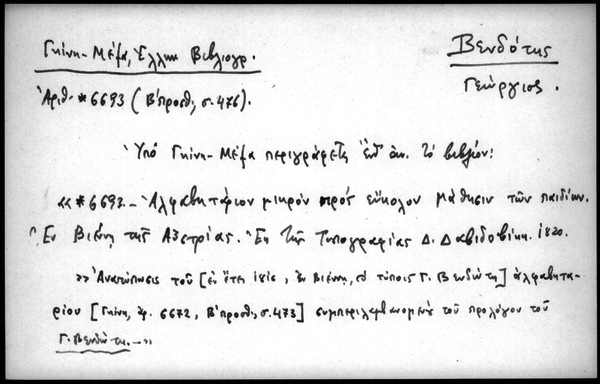 Γκίνη-Μέξα, Ἑλλην. Βιβλιογρ.
Βενδότης
Γεώργιος.
Ἀριθ. *6693 (Β΄προσθ, σ. 476).
Ὑπό Γκίνη-Μέξα περιγράφεται τό βιβλίον:
«*6693.- Ἀλφαβητάριον μικρόν πρός εὔκολον μάθησιν τῶν παιδίων.
Ἐν Βιέννῃ τῆς Αὐστρίας. Ἐκ τῆς Τυπογραφίας Δ. Δαβιδοβίκη. 1820.
»Ἀνατύπωσις τοῦ [ἐν ἔτει 1816, ἐν Βιέννῃ, τύποις Γ. Βενδώτη] ἀλφαβητα-
ρίου [Γκίνη, ἀρ. 6672, Β΄προσθ, σ. 473] συμπεριλαμβανομένου τοῦ προλόγου τοῦ
Γ. Βενδώτη.—»